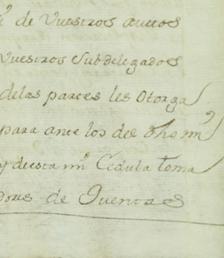 de Vuestros autos
Vuestros Subdelegados
delas partes les Otorga
para ante los del
y desta mi Cedula toma
dores de Quentas